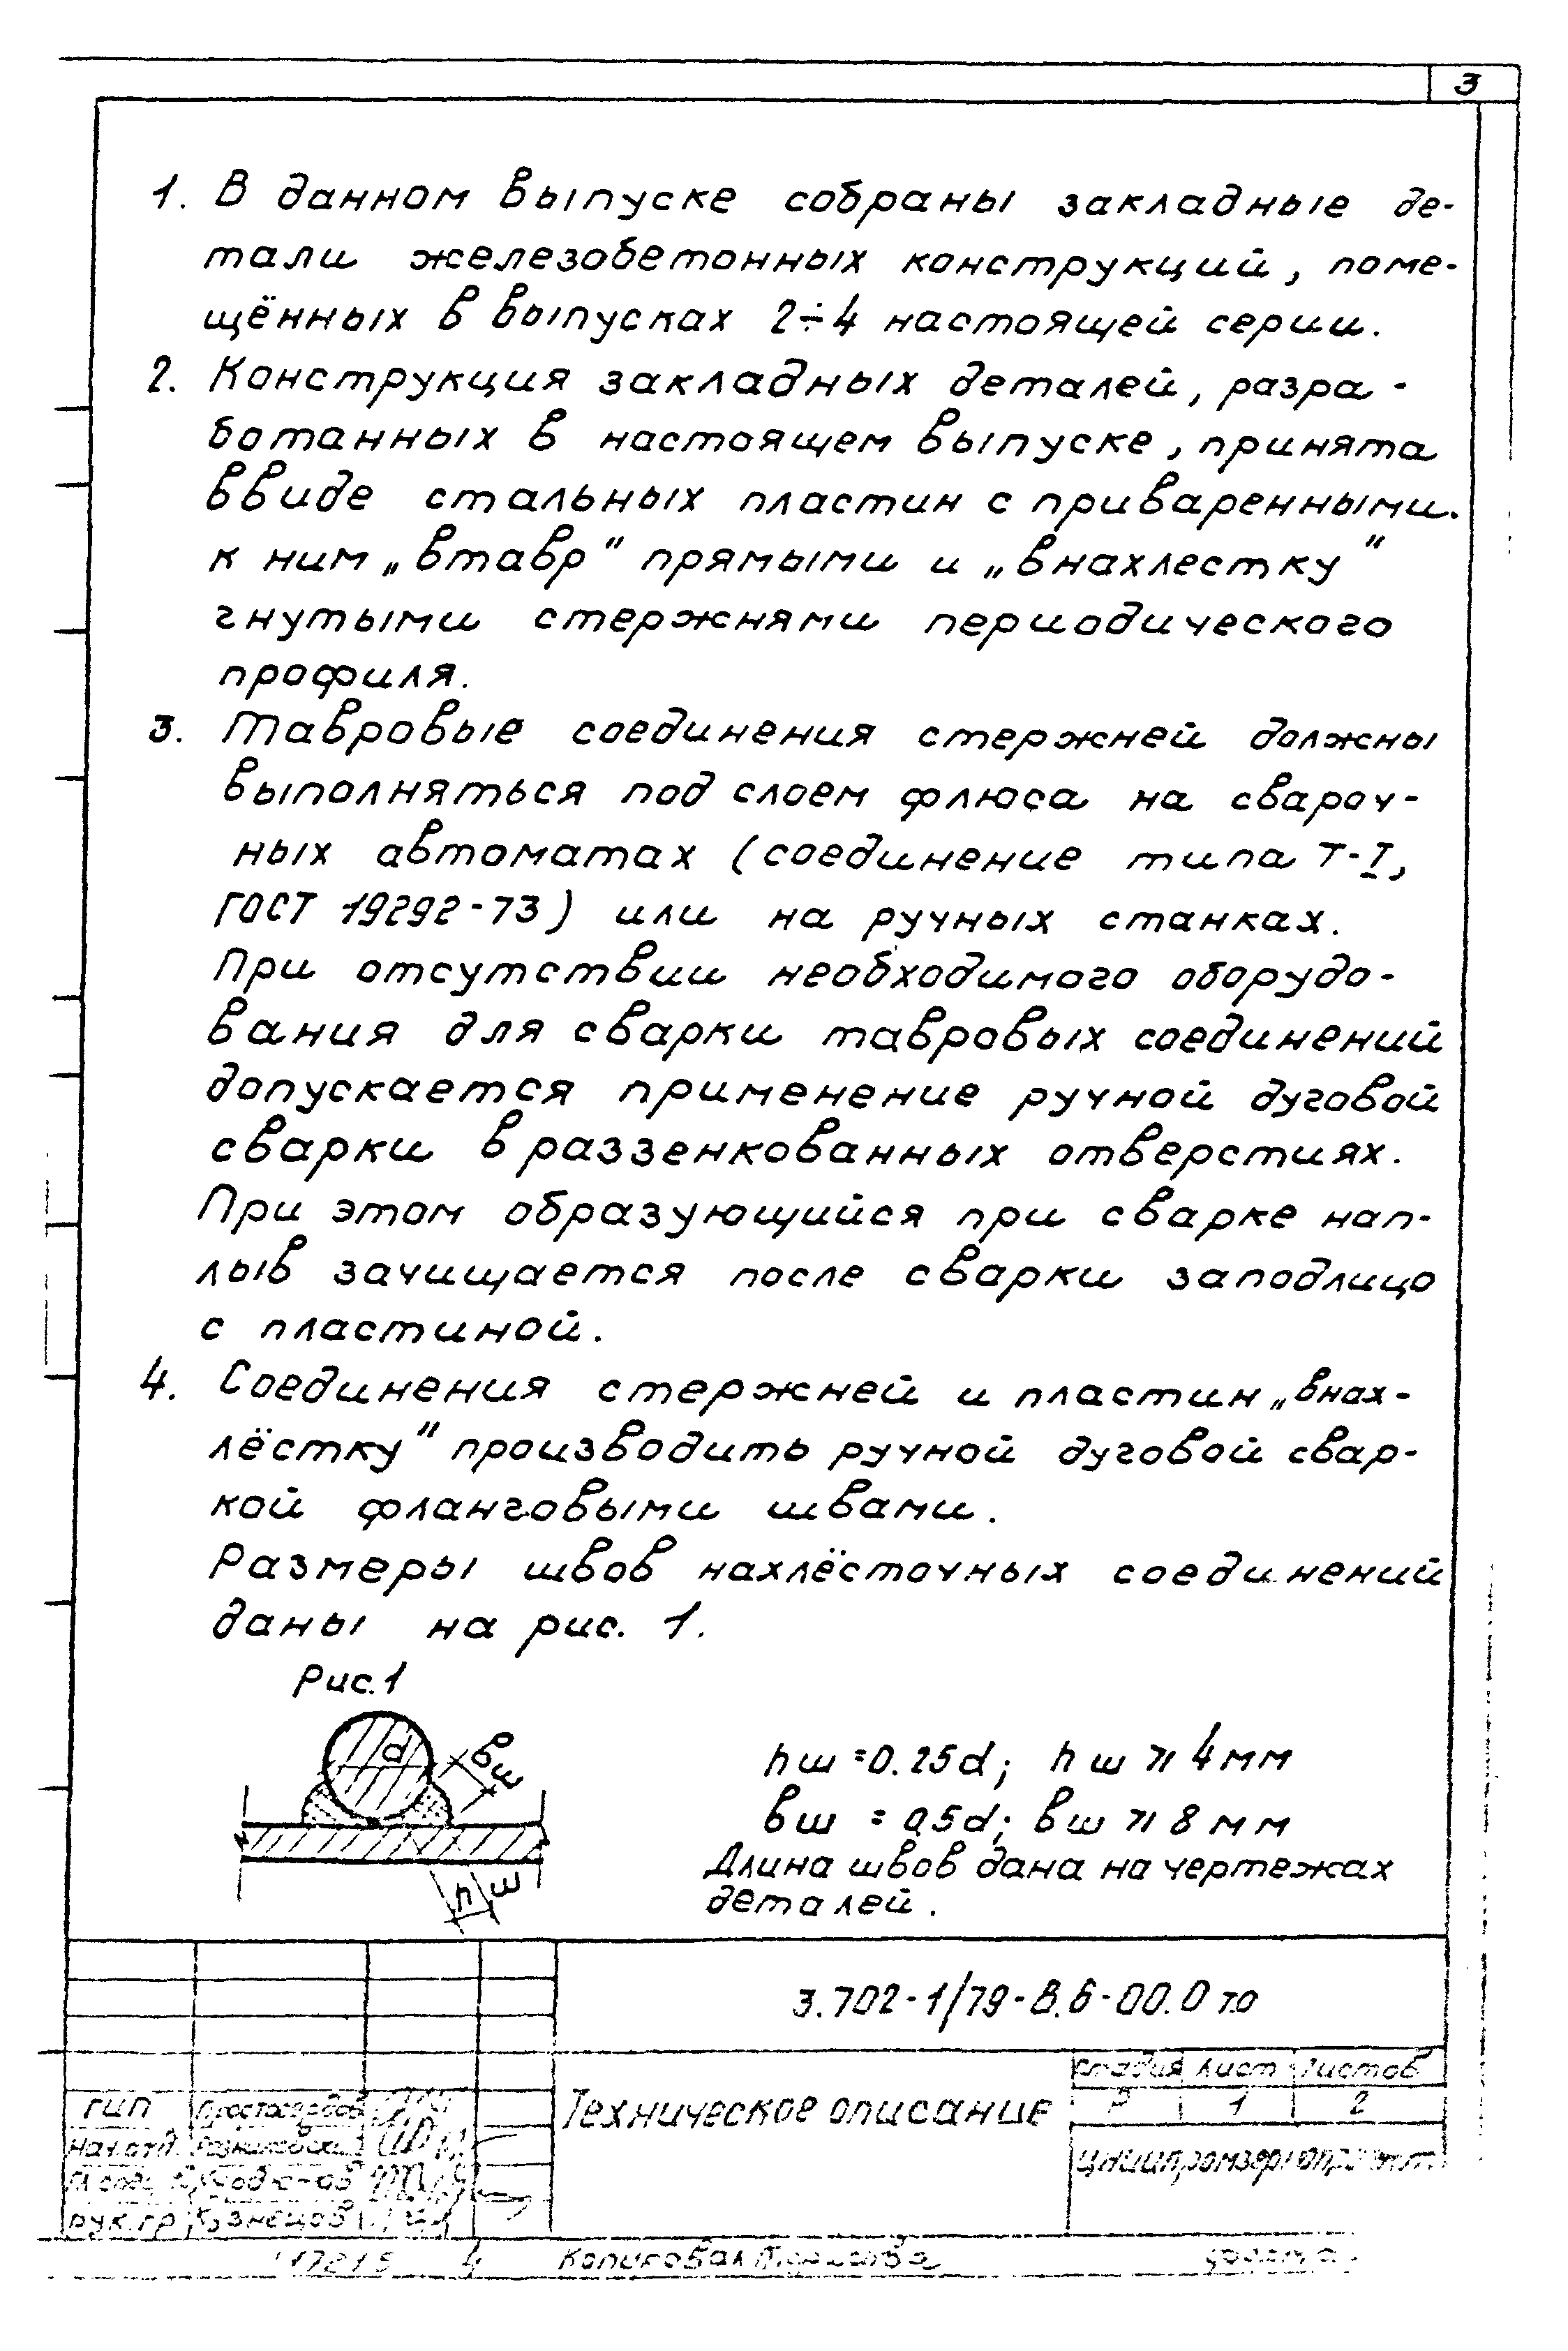 3
1. В данном выпуске собраны закладные де-
тали железобетонных конструкций, поме-
щённых в выпусках 2÷4 настоящей серии.
2. Конструкция закладных деталей, разра-
ботанных в настоящем выпуске, принята
ввиде стальных пластин с приваренными.
к ним „втавр" прямыми и „внахлестку"
гнутыми стержнями периодического
профиля.
3. Тавровые соединения стержней должны
выполняться под слоем флюса на свароч-
ных автоматах (соединение типа Т-I,
ГОСТ 19292-73) или на ручных станках.
При отсутствии необходимого оборудо-
вания для сварки тавровых соединений
допускается применение ручной дуговой
сварки в раззенкованных отверстиях.
При этом образующийся при сварке нап-
лыв зачищается после сварки заподлицо
с пластиной.
4. Соединения стержней и пластин „внах-
лёстку" производить ручной дуговой свар-
кой фланговыми швами.
Размеры швов нахлёсточных соединений
даны на рис. 1.
Рис.1
d
вш
hш
hш =0.25d; hш ⩾ 4мм
вш = 0,5d; вш ⩾ 8 мм
Длина швов дана на чертежах
деталей.
3.702-1/79-В.6-00.0 ТО
Техническое описание
Стадия Лист Листов
Р 1 2
ГИП
Нач.отд.
Рук.гр Кузнецов
17215 4 Копировал